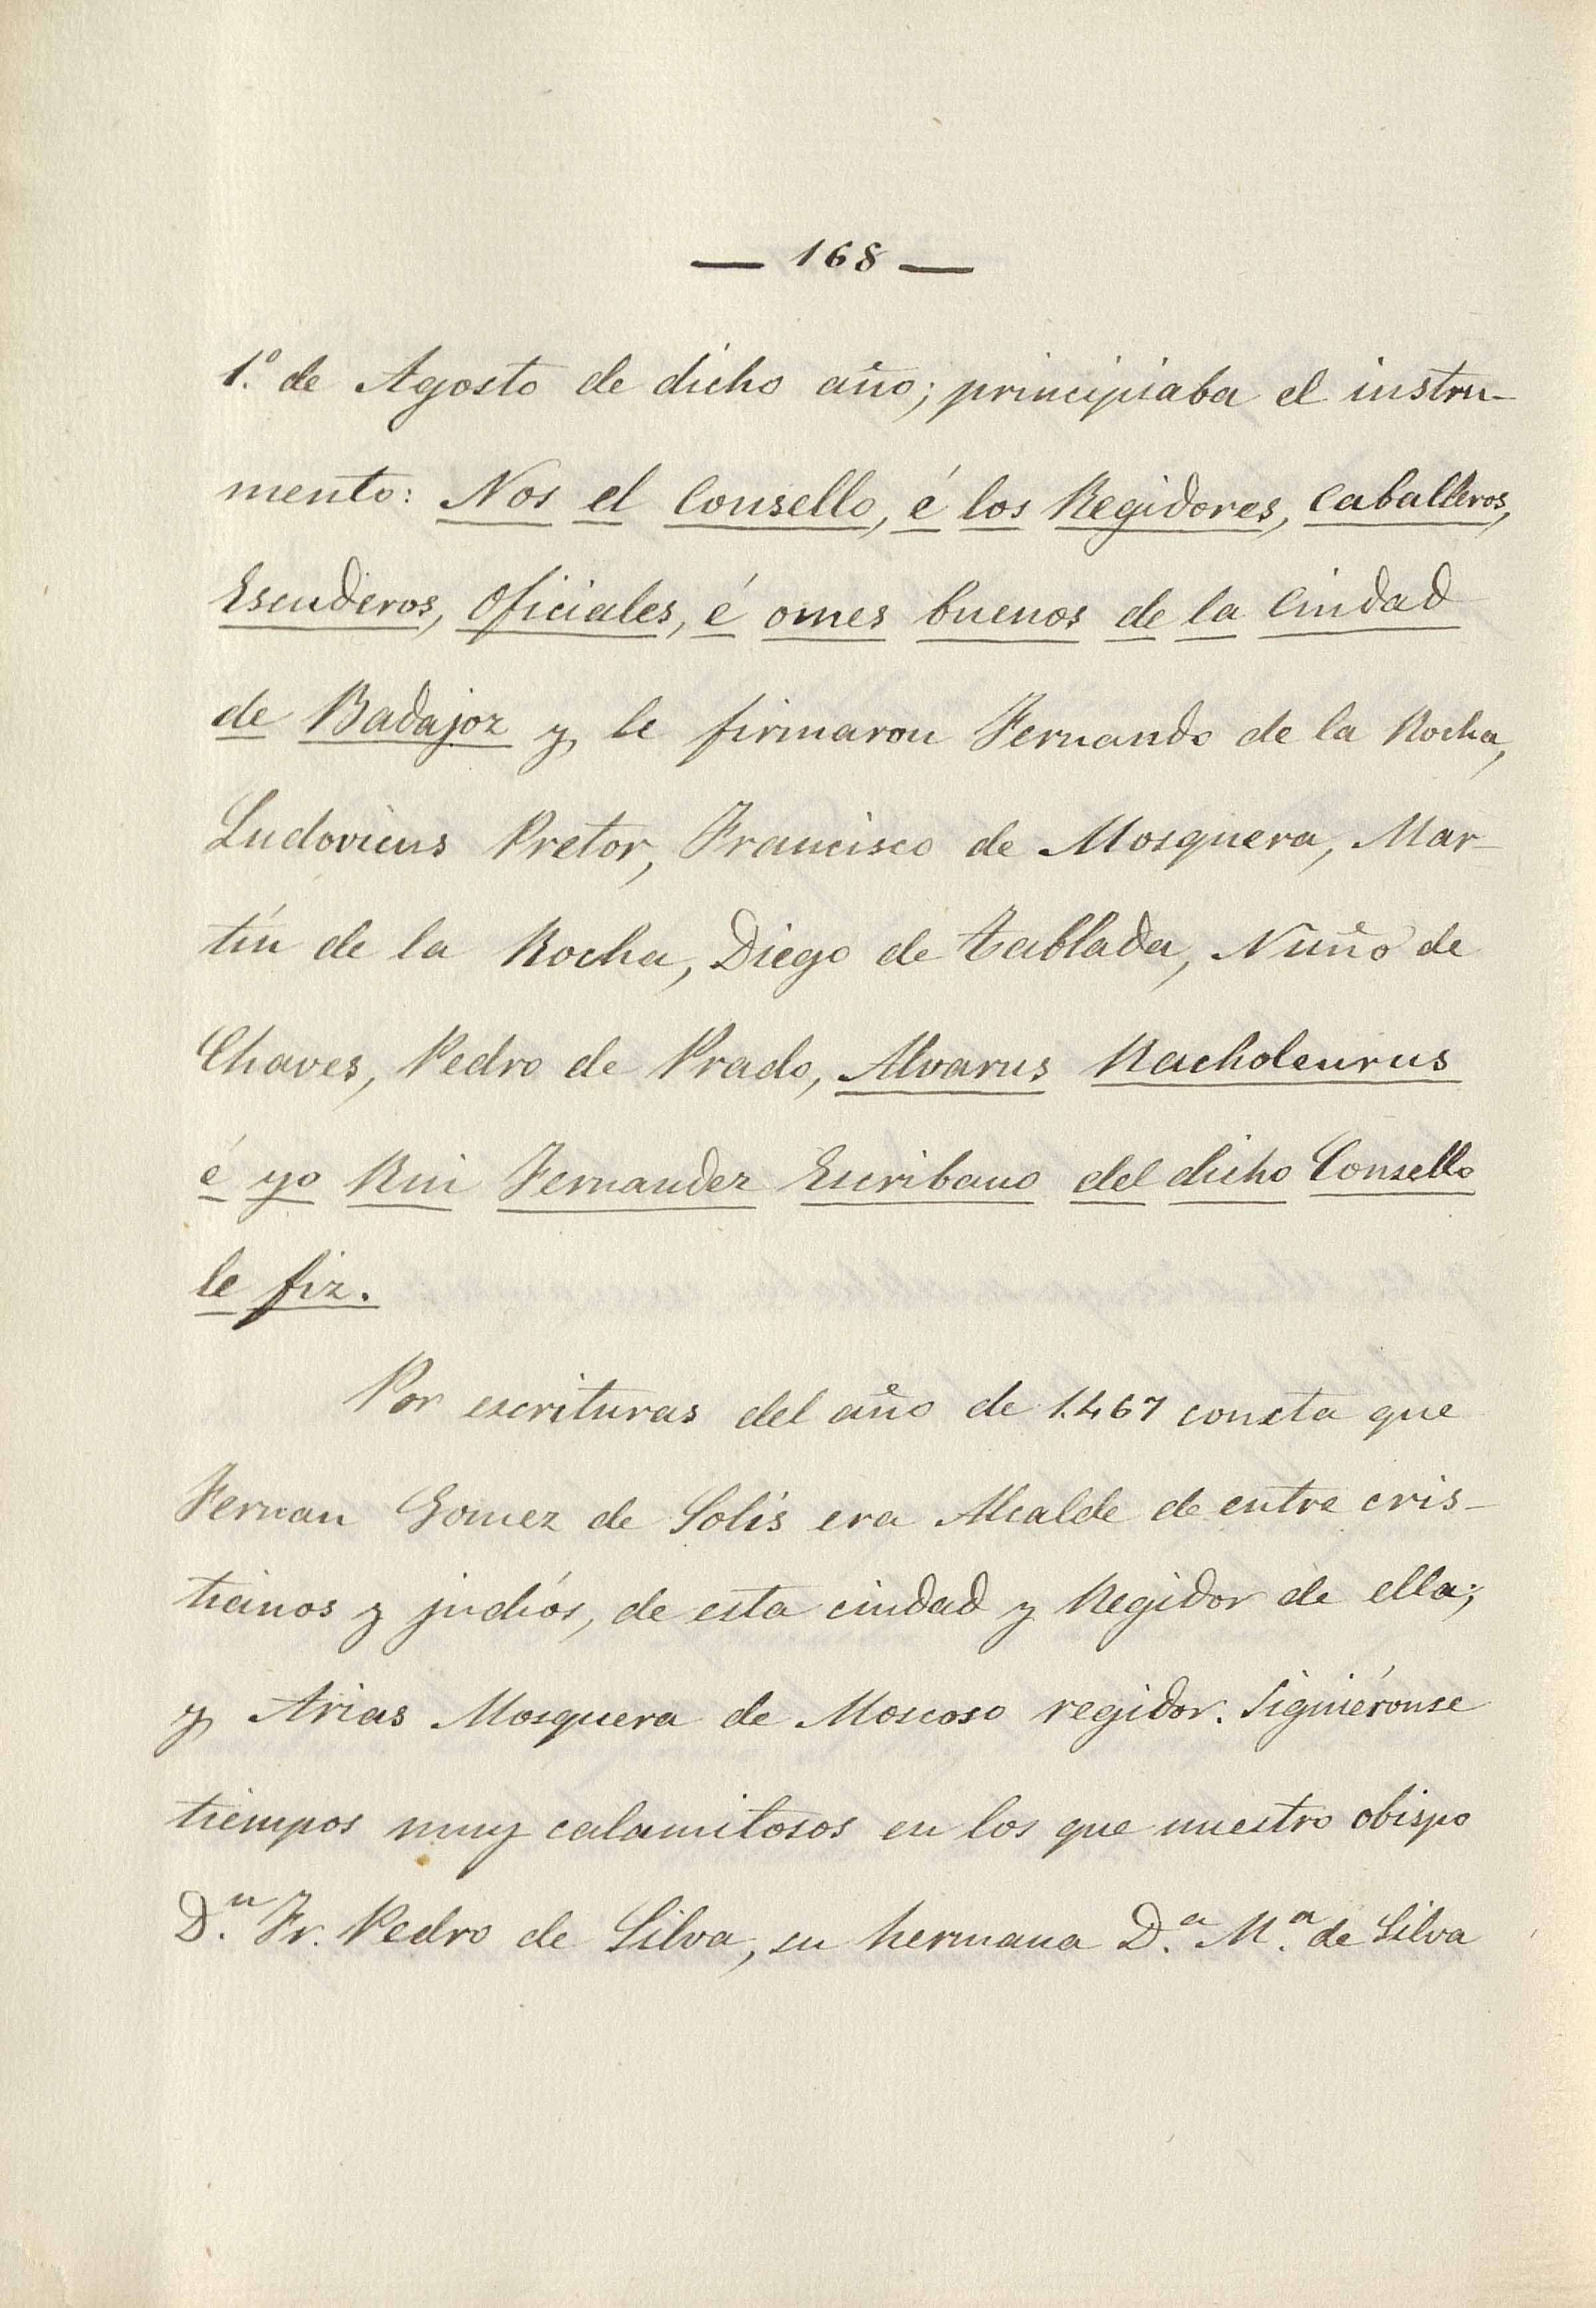 — 168 —
1.º de Agosto de dicho año; principiaba el instru-
mento: Nos el Consello, é los Regidores, Caballeros,
Escuderos, Oficiales, é omes buenos de la Ciudad
de Badajoz y le firmaron Fernando de la Rocha,
Ludovicus Pretor, Francisco de Mosquera, Mar-
tín de la Rocha, Diego de Tablada, Nuño de
Chaves, Pedro de Prado, Alvarus Racholeurus
é yo Rui Fernandez Escribano del dicho Consello
le fiz.
Por escrituras del año de 1.467 consta que
Fernan Gomez de Solís era Alcalde de entre cris-
tianos y judíos, de esta ciudad y Regidor de ella;
y Arias Mosquera de Moscoso regidor. Siguiéronse
tiempos muy calamitosos en los que nuestro obispo
D.n Fr. Pedro de Silva, su hermana D.a M.a de Silva